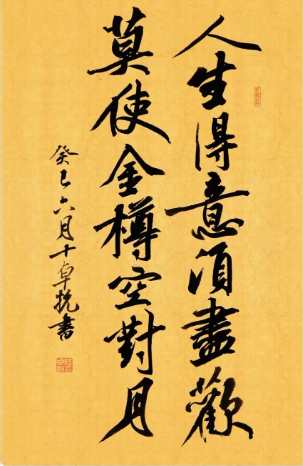 人生得意須盡歡
莫使金樽空對月
癸巳六月十卓挽書